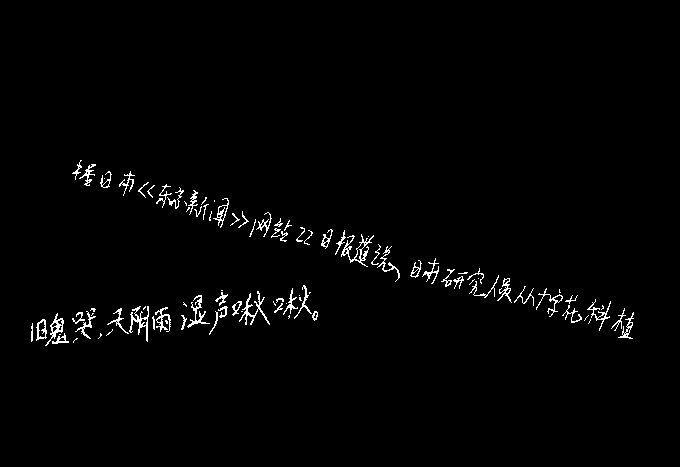 据日本《《东京新闻》》网站22日报道说、日本研究人员从十字花科植
旧鬼哭,天阴雨湿声啾啾。